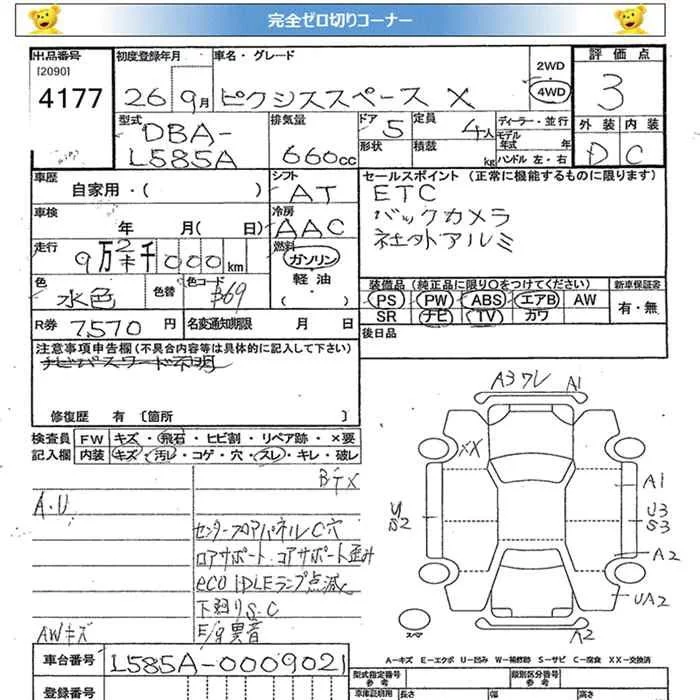 完全ゼロ切りコーナー
出品番号
[2090]
4177
初度登録年月
26 9月
車名・グレード
ピクシススペース X
2WD
4WD
評価点
3
型式
DBA-
L585A
排気量
660cc
ドア 5
定員 4人
形状
積載 kg
ディーラー・並行
モデル
年式 年
ハンドル 左・右
外装 内装
D C
車歴
自家用・( )
シフト
AT
車検
年 月( 日)
冷房
AAC
走行
9万2千000km
燃料
ガソリン
軽油
( )
セールスポイント (正常に機能するものに限ります)
ETC
バックカメラ
社外アルミ
色
水色
色替
色コード
装備品 (純正品に限り○をつけてください)
PS PW ABS エアB AW
SR ナビ TV カワ
新車保証書
有・無
R券 7,570 円
名変通知期限 月 日
後日品
注意事項申告欄 (不具合内容等は具体的に記入して下さい)
ナビパスワード不明
修復歴 有 〔箇所 〕
検査員
記入欄
FW キズ・飛石・ヒビ割・リペア跡・×要
内装 キズ・汚レ・コゲ・穴・スレ・キレ・破レ
A.U
センターフロアパネルC穴
ロアサポート・コアサポート歪み
eco IDLEランプ点滅
下廻りS.C
AWキズ
E/g異音
A3ワレ A1
XX
A1
U3
S3
A2
UA2
A2
スペア
A-キズ E-エクボ U-凹み W-補修跡 S-サビ C-腐食 XX-交換済
車台番号
L585A-0009021
登録番号
型式指定番号
参考
類別区分番号
参考
車庫証明用
長さ
幅
高さ